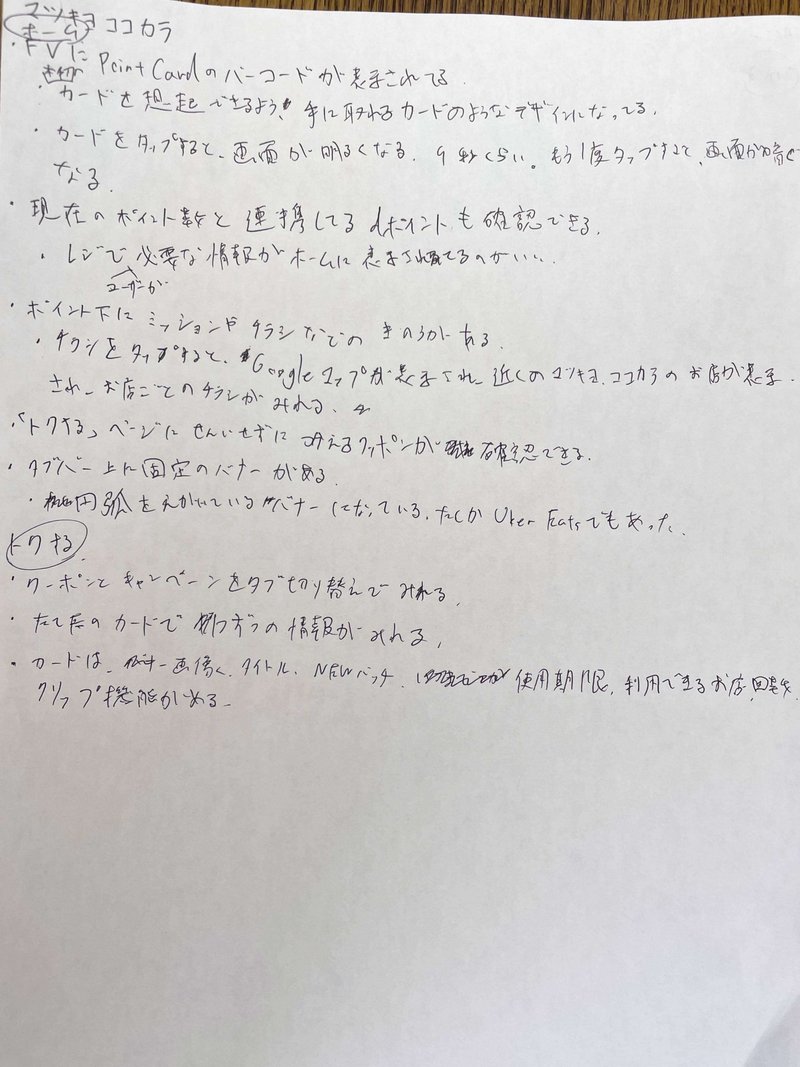 マツキヨ ココカラ
ホーム
・FVに Point Cardのバーコードが表示されてる.
・カードを想起できるよう、手に取れるカードのようなデザインになってる.
・カードをタップすると、画面が明るくなる. 9秒くらい。もう1度タップすると、画面が暗く
なる.
・現在のポイント数と連携してるdポイントも確認できる.
・レジで必要な情報がホームに表示されてるのがいい.
ユーザーが
・ポイント下にミッションやチラシなどのきのうがある.
・チラシをタップすると、Googleマップが表示され、近くのマツキヨ、ココカラのお店が表示
され、お店ごとのチラシがみれる.
・「トクする」ページにせんいせずに使えるクーポンが確認できる.
・タブバー上に固定のバナーがある.
・円弧をえがいているバナーになっている. たしかUber Eatsでもあった.
トクする
・クーポンとキャンペーンをタブ切り替えでみれる.
・カードで1つずつの情報がみれる.
・カードは、画像、タイトル、NEWバッチ、使用期限、利用できるお店、回数、
クリップ機能がある.